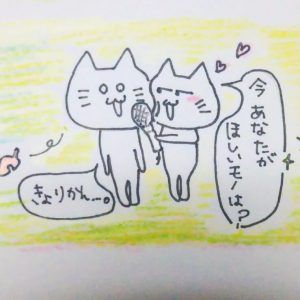 今 あなたが
ほしいモノは？
きょりかん…。